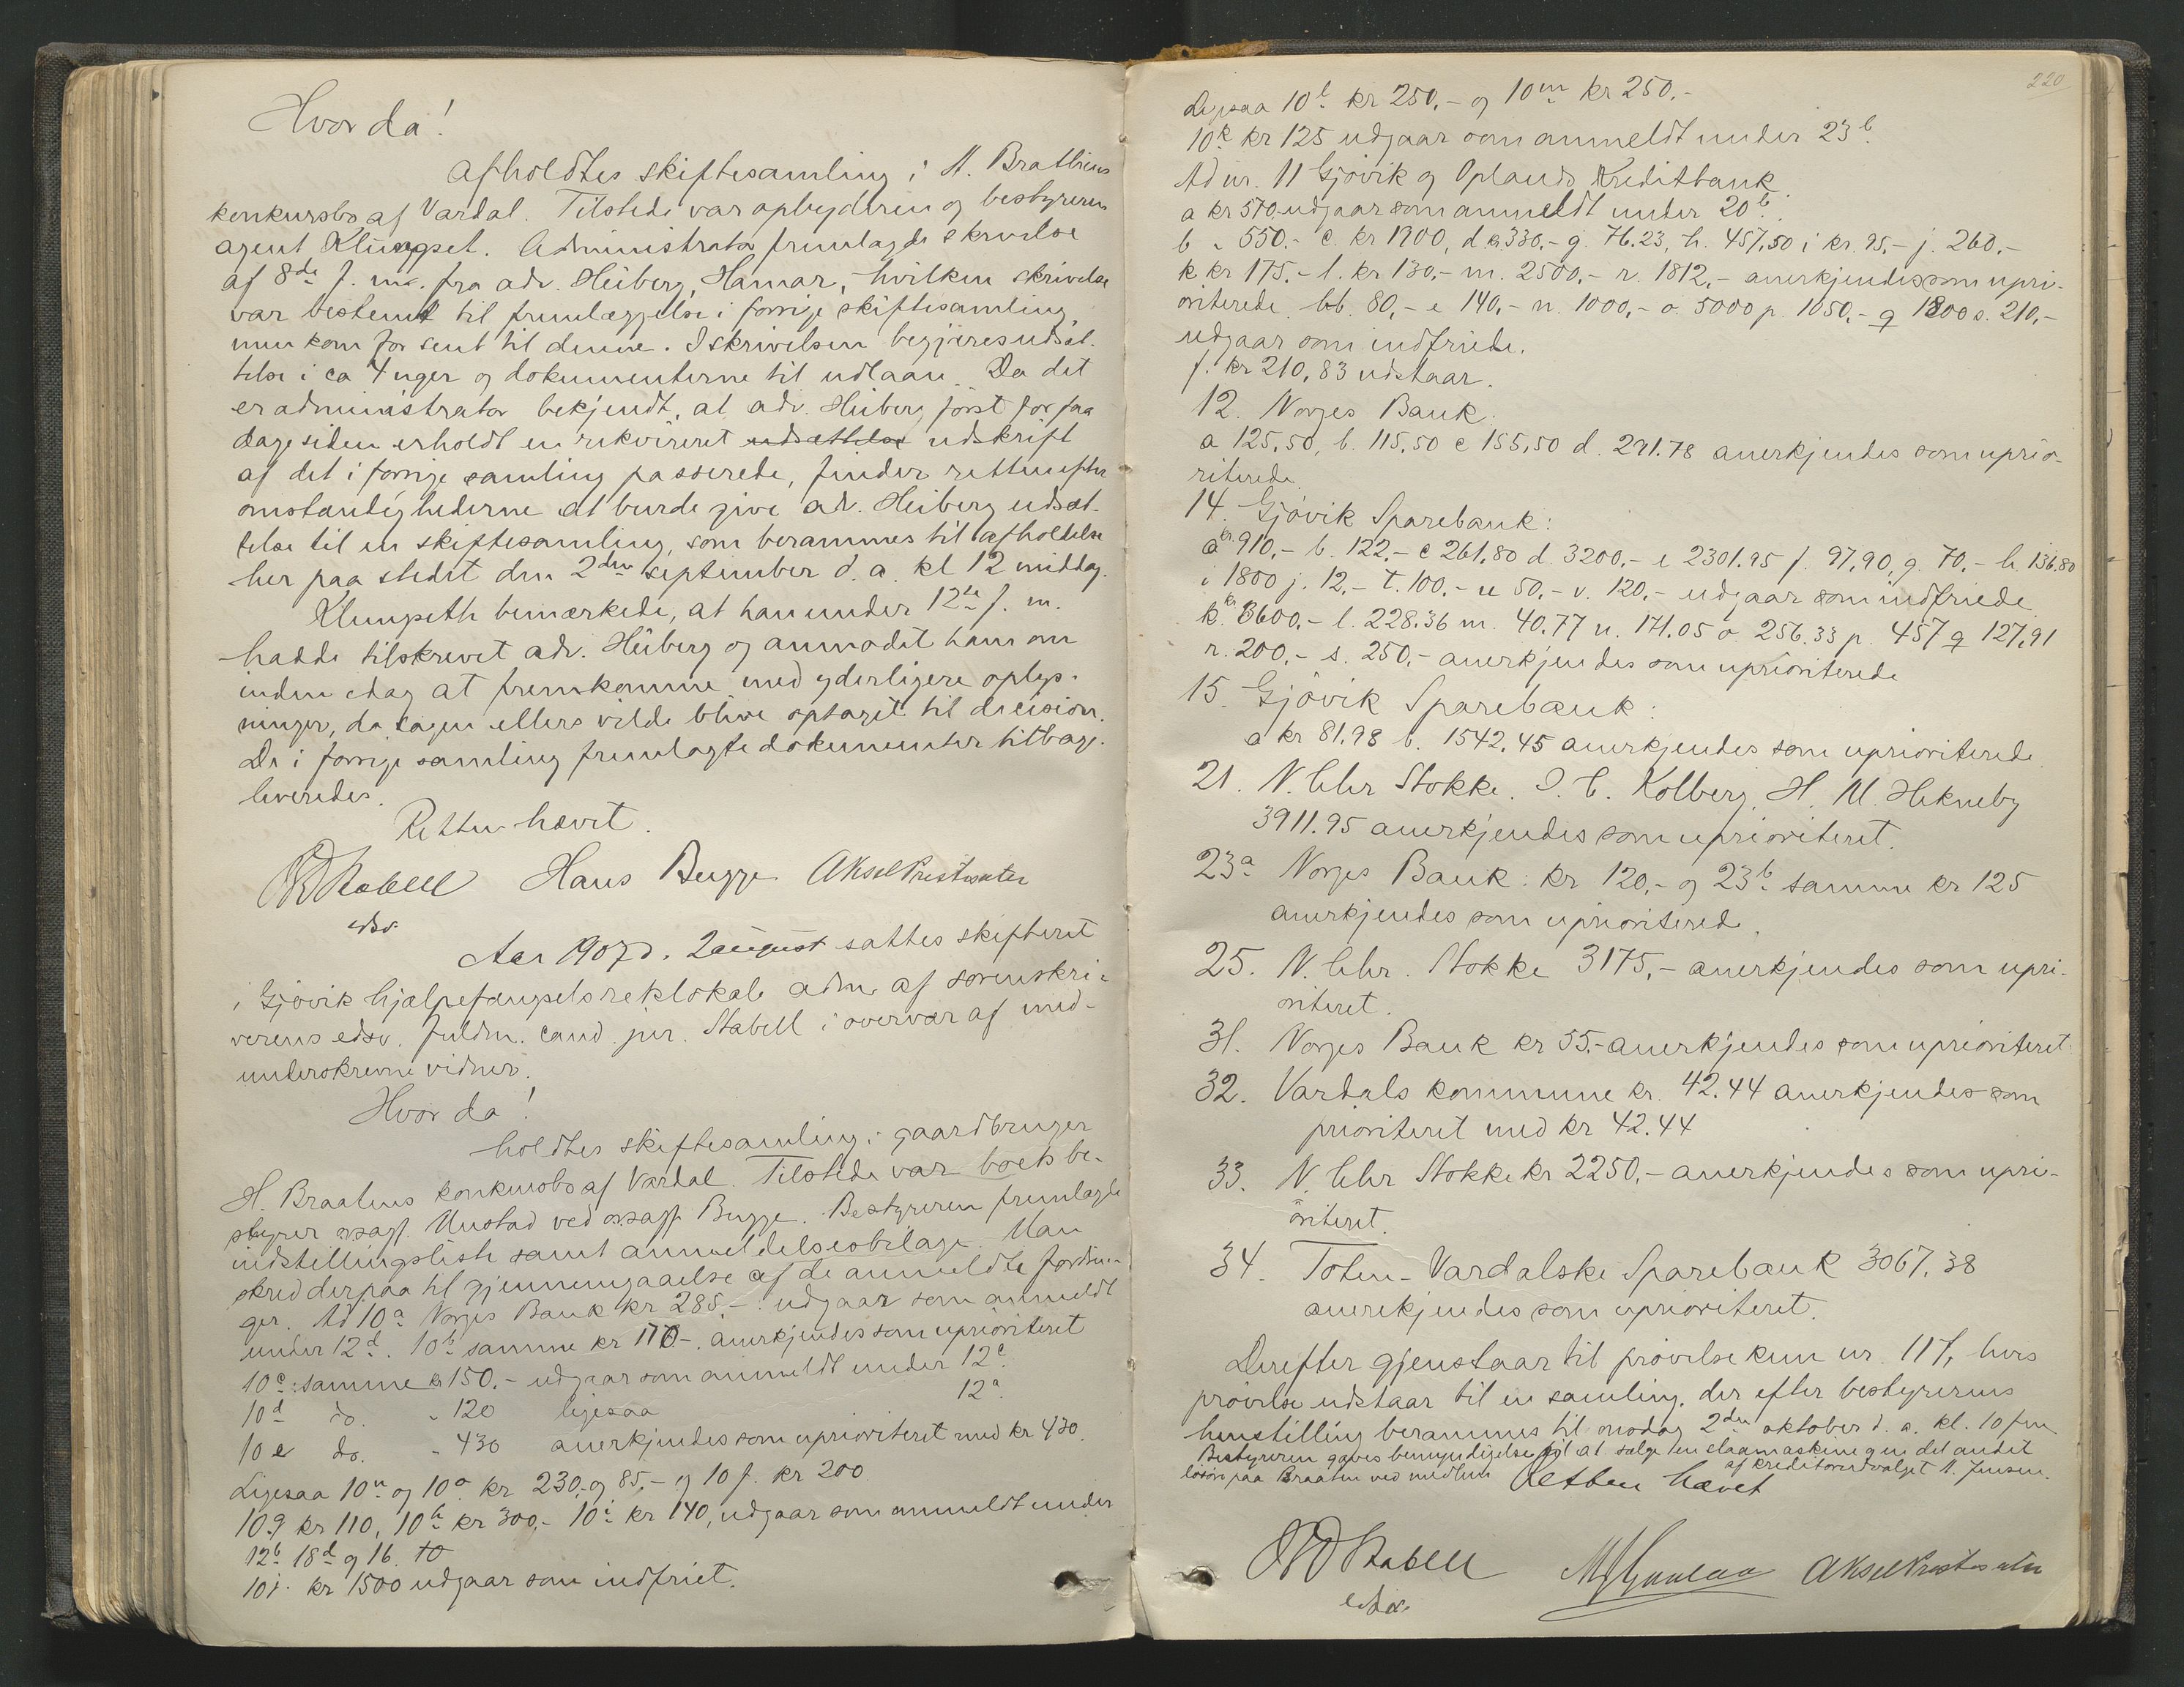 Hvor da!
afholdtes skiftesamling i A. Brathens
konkursbo af Vardal. Tilstede var opbyderen og bestyreren
agent Klungset. Administrator fremlagde skrivelse
af 8de f. m. fra adv. Heiberg, Hamar, hvilken skrivelse
var bestemt til fremlæggelse i forrige skiftesamling,
men kom for sent til denne. I skrivelsen begjæres udsæt-
telse i ca 4 uger og dokumenterne til udlaan. Da det
er administrator bekjendt, at adv. Heiberg først for faa
dage siden erholdt en rekvireret udsættelse udskrift
af det i forrige samling passerede, finder retten efter
omstændighederne at burde give adv. Heiberg udsæt-
telse til en skiftesamling, som berammes til afholdelse
her paa stedet den 2den september d. a. kl 12 middag.
Klungseth bemærkede, at han under 12te f. m.
hadde tilskrevet adv. Heiberg og anmodet ham om
inden idag at fremkomme med yderligere oplys-
ninger, da sagen ellers vilde blive optaget til decision.
De i forrige samling fremlagte dokumenter tilbage-
leveredes.
Retten hævet.
Stabell Hans Bugge Aksel Prestesæter
edsv.
Aar 1907 d. 2 august sattes skifteret
i Gjøvik hjælpefængsels retslokale adm. af sorenskri-
verens edsv. fuldm. cand. jur. Stabell i overvær af med-
underskrevne vidner.
Hvor da!
holdtes skiftesamling i gaardbruger
H. Braatens konkursbo af Vardal. Tilstede var boets be-
styrer orsagf. Mustad ved orsagf. Bugge. Bestyreren fremlagde
indstillingsliste samt anmeldelsesbilage. Man
skred derpaa til gjennemgaaelse af de anmeldte fordrin-
ger. Ad 10a Norges Bank kr 285,- : udgaar som anmeldt
under 12d. 10b samme kr 170- anerkjendes som uprioriteret
10c samme kr 150,- udgaar som anmeldt under 12c.
10d do. " 120 ligesaa 12a.
10e do. " 430 anerkjendes som uprioriteret med kr 430.
Ligesaa 10n og 10o kr 230,- og 85,- og 10f. kr 200
10g kr 110, 10h kr 300,- 10i kr 140, udgaar som anmeldt under
12b 18d og 16. 10
10j. kr 1500 udgaar som indfriet.
220
Ligesaa 10l kr 250,- og 10m kr 250.-
10k kr 125 udgaar som anmeldt under 23b.
Ad nr. 11 Gjøvik og Oplands Kreditbank.
a kr 570 udgaar som anmeldt under 20b.
b " 550.- c. kr 1900, d. kr 330,- g. 76.23, h. 457,50 i kr. 95,- j. 260,-
k kr 175.- l. kr 130,- m. 2500,- r. 1812,- anerkjendes som upri-
oriterede. bb. 80,- e 140,- n. 1000,- o. 5000 p. 1050,- q 1800 s. 210,-
udgaar som indfriede.
f. kr 210,83 udstaar.
12. Norges Bank.
a 125,50, b. 115,50 c 155,50 d. 291.78 anerkjendes som uprio-
riterede.
14. Gjøvik Sparebank:
a kr. 910,- b. 122,- c 261,80 d. 3200,- e 2301.95 f. 97,90, g. 70,- h. 136.80
i 1800 j. 12,- t. 100.- u 50,- v. 120,- udgaar som indfriede.
k. kr 3600,- l. 228.36 m. 40.77 n. 171.05 o. 256.33 p. 457 q 127,91
r. 200,- s. 250,- anerkjendes som uprioriterede
15. Gjøvik Sparebank:
a kr 81.98 b. 1542.45 anerkjendes som uprioriterede.
21. N. Chr Stokke, I. C. Kolberg, H. M. Hekneby
3911.95 anerkjendes som uprioriteret.
23a Norges Bank: kr 120,- og 23b samme kr 125
anerkjendes som uprioriterede.
25. N. Chr. Stokke 3175,- anerkjendes som upri-
oriteret.
31. Norges Bank kr 55,- anerkjendes som uprioriteret.
32. Vardals kommune kr. 42.44 anerkjendes som
prioriteret med kr 42.44
33. N. Chr Stokke kr 2250,- anerkjendes som upri-
oriteret.
34. Toten-Vardalske Sparebank 3067,38
anerekjendes som uprioriteret.
Derefter gjenstaar til prøvelse kun nr. 11f, hvis
prøvelse udstaar til en samling, der efter bestyrerens
henstilling berammes til onsdag 2den oktober d. a. kl. 10 fm.
Bestyreren gaves bemyndigelse til at sælge en slaamaskine og en del andet
løsøre paa Braaten ved medlem af kreditorudvalget A. Jensen.
Retten hævet
Stabell Aksel Prestesæter
edsv.